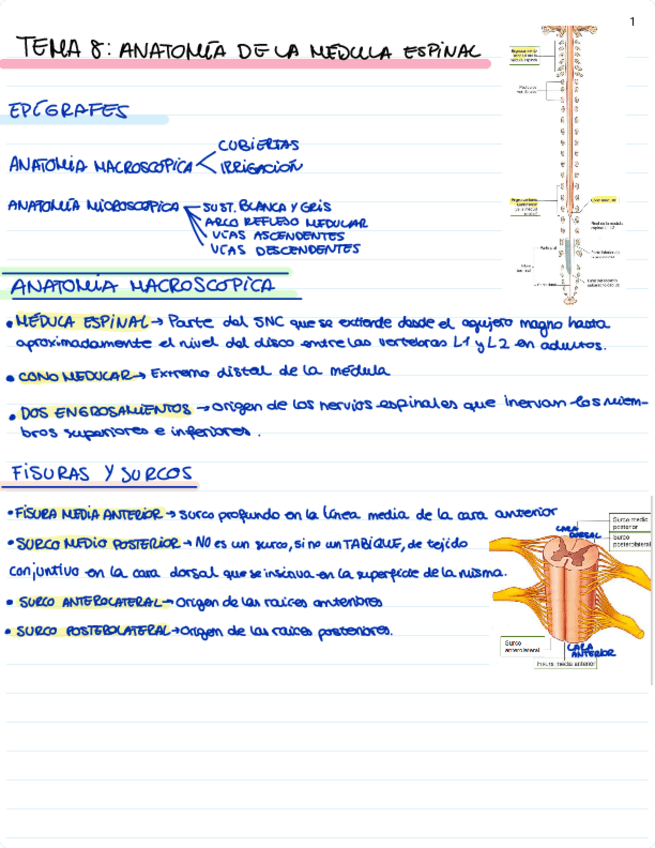 1
TEMA 8: ANATOMÍA DE LA MEDULA ESPINAL
EPÍGRAFES
CUBIERTAS
ANATOMÍA MACROSCOPICA
IRRIGACIÓN
ANATOMÍA MICROSCOPICA
SUST. BLANCA Y GRIS
ARCO REFLEJO MEDULAR
VÍAS ASCENDENTES
VÍAS DESCENDENTES
ANATOMÍA MACROSCOPICA
• MÉDULA ESPINAL → Parte del SNC que se extiende desde el agujero magno hasta
aproximadamente el nivel del disco entre las vertebras L1 y L2 en adultos.
• CONO MEDULAR → Extremo distal de la médula
• DOS ENGROSAMIENTOS → origen de los nervios espinales que inervan los miem-
bros superiores e inferiores.
FISURAS Y SURCOS
• FISURA MEDIA ANTERIOR → surco profundo en la línea media de la cara anterior
• SURCO MEDIO POSTERIOR → NO es un surco, sino un TABIQUE, de tejido
conjuntivo en la cara dorsal que se insinua en la superficie de la misma.
• SURCO ANTEROLATERAL → Origen de las raices anteriores
• SURCO POSTEROLATERAL → Origen de las raices posteriores.
Surco medio
posterior
CARA
DORSAL
Surco
posterolateral
Surco
anterolateral
CARA
ANTERIOR
Fisura media anterior